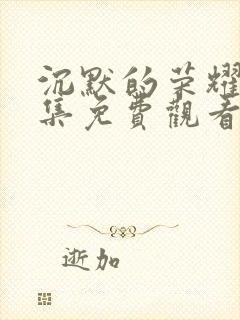 沉默的荣耀
集免費觀看
逝加